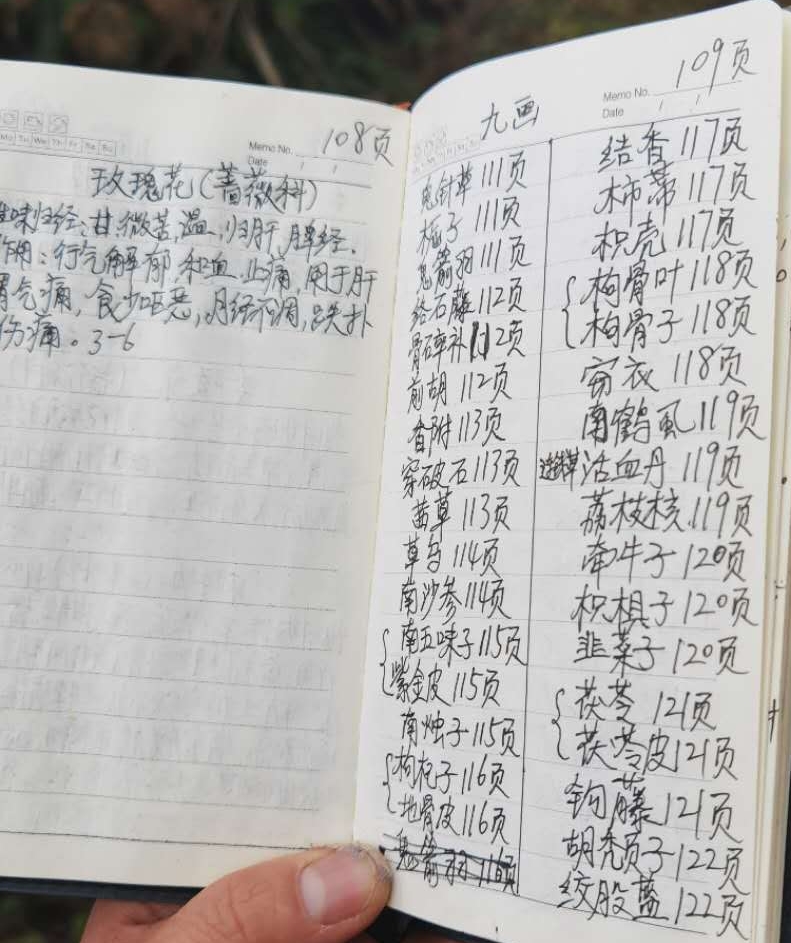 Mo Tu We Th Fr Sa Su
Memo No. 108页
Date / /
玫瑰花(蔷薇科)
性味归经:甘微苦,温,归肝,脾经。
作用:行气解郁,和血,止痛,用于肝
胃气痛,食少呕恶,月经不调,跌扑
伤痛。3-6
Memo No. 109页
Date / /
九画
鬼针草 111页
栀子 111页
鬼箭羽 111页
络石藤 112页
骨碎补 112页
前胡 112页
香附 113页
穿破石 113页
茜草 113页
草乌 114页
南沙参 114页
南五味子 115页
紫金皮 115页
南烛子 115页
枸杞子 116页
地骨皮 116页
鬼箭羽 116页
结香 117页
柿蒂 117页
枳壳 117页
枸骨叶 118页
枸骨子 118页
窃衣 118页
南鹤虱 119页
活血丹 119页
荔枝核 119页
牵牛子 120页
枳椇子 120页
韭菜子 120页
茯苓 121页
茯苓皮 121页
钩藤 121页
胡秃颓子 122页
绞股蓝 122页